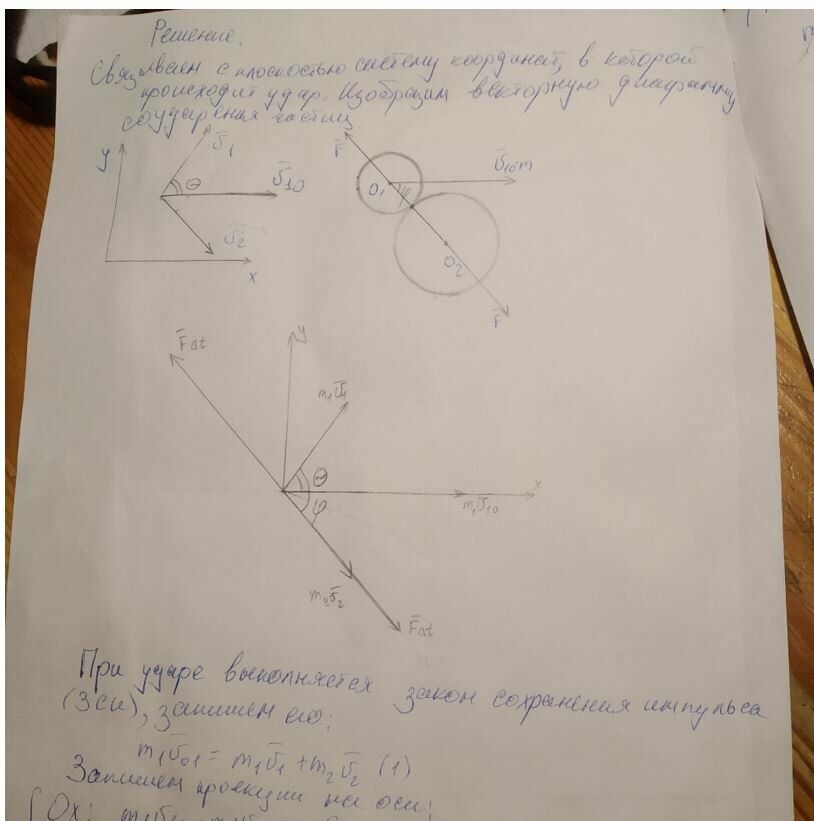 Решение.
Свяжем с плоскостью систему координат, в которой
происходит удар. Изобразим векторную диаграмму
соударения частиц.
y
v̄₁
θ
v̄₁₀
v̄₂
x
F̄
v̄₁₀m
O₁
φ
O₂
F̄
F̄Δt
y
m₁v̄₁
θ
x
m₁v̄₁₀
φ
m₂v̄₂
F̄Δt
При ударе выполняется закон сохранения импульса
(ЗСИ), запишем его:
m₁v̄₀₁ = m₁v̄₁ + m₂v̄₂ (1)
Запишем проекции на оси:
Ox: